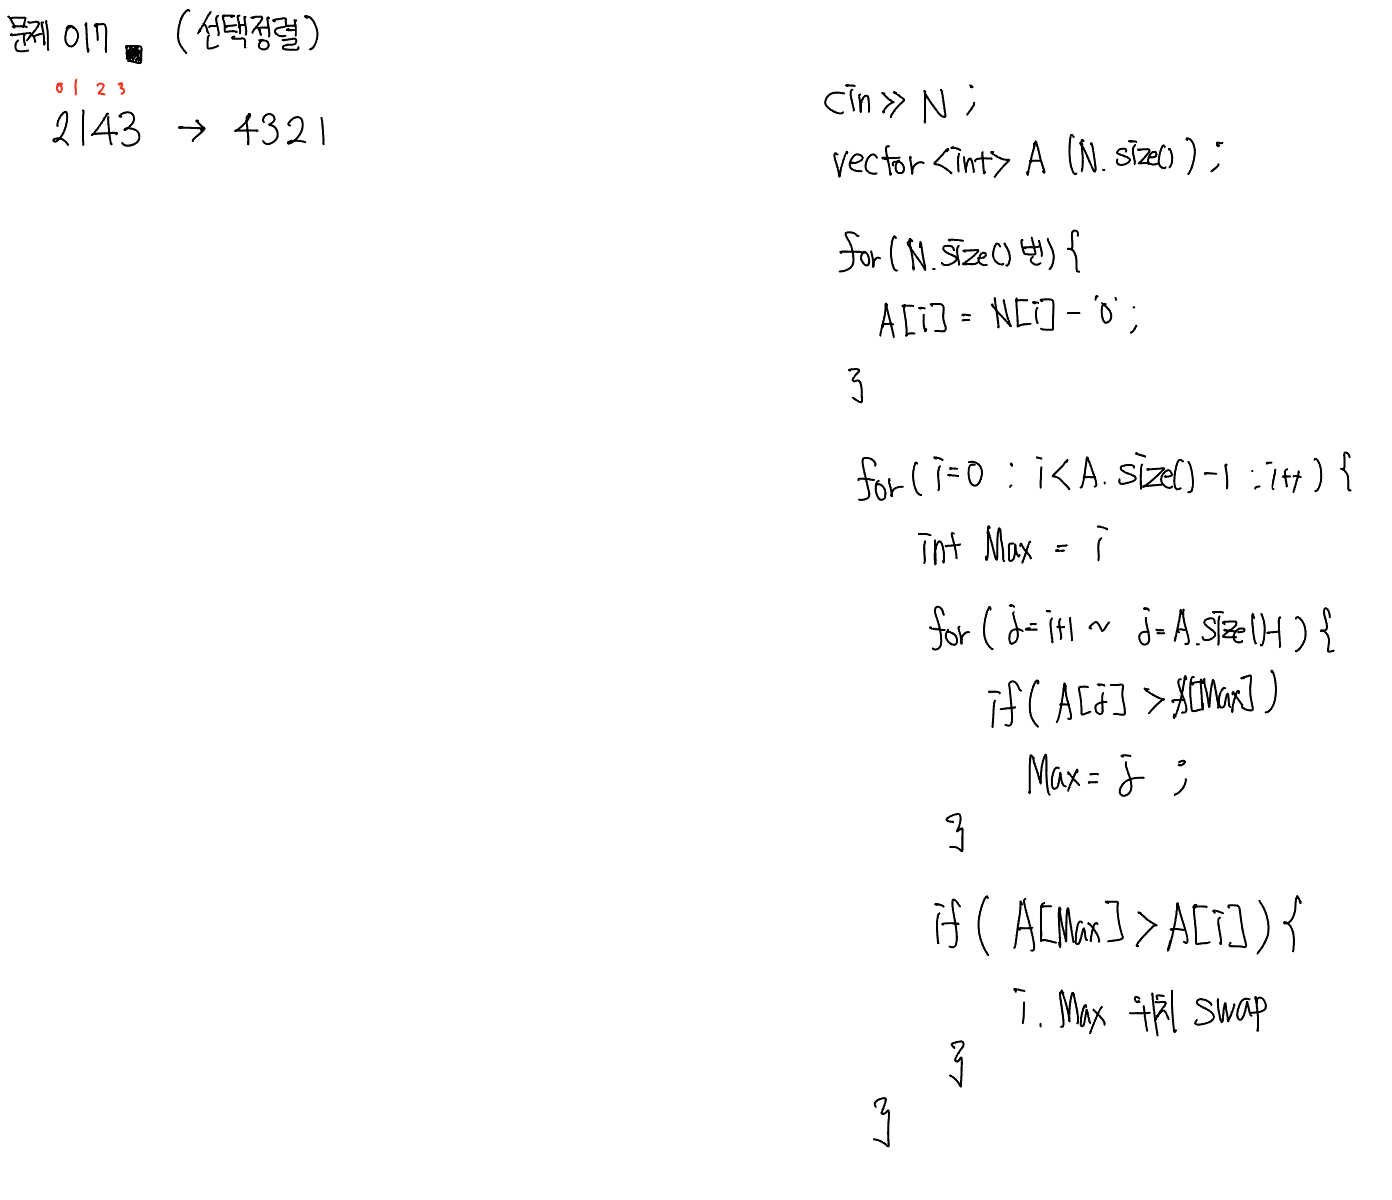 문제 017. (선택정렬)
0 1 2 3
2143 → 4321
cin >> N ;
vector<int> A (N.size()) ;
for(N.size()번){
A[i] = N[i] - '0' ;
}
for(i=0 ; i<A.size()-1 ; i++){
int Max = i
for(j=i+1 ~ j=A.size()-1){
if(A[j] > A[Max])
Max = j ;
}
if(A[Max] > A[i]){
i. Max 위치 swap
}
}